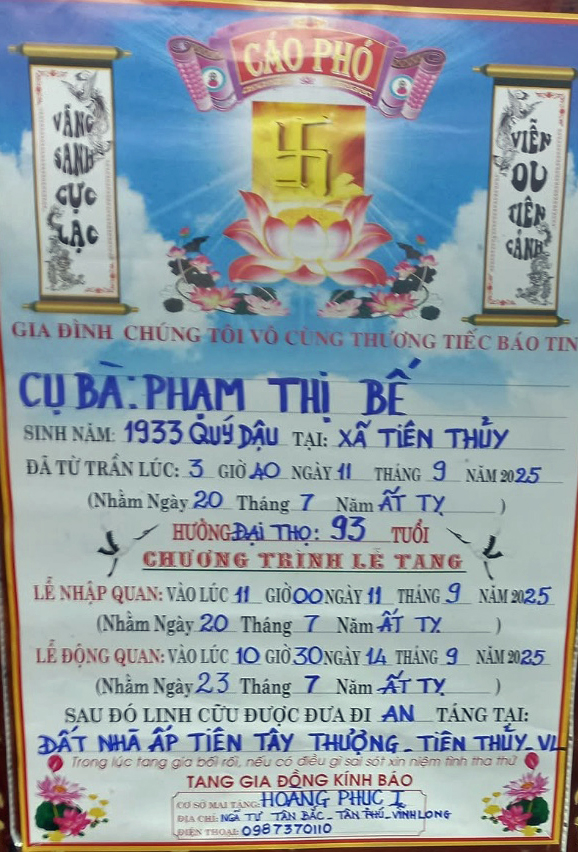 CÁO PHÓ
VÃNG
SANH
CỰC
LẠC
VIỄN
DU
TIÊN
CẢNH
GIA ĐÌNH CHÚNG TÔI VÔ CÙNG THƯƠNG TIẾC BÁO TIN
CỤ BÀ: PHẠM THỊ BẾ
SINH NĂM: 1933 QUÝ DẬU TẠI: XÃ TIÊN THỦY
ĐÃ TỪ TRẦN LÚC: 3 GIỜ 40 NGÀY 11 THÁNG 9 NĂM 2025
(Nhằm Ngày 20 Tháng 7 Năm ẤT TỴ)
HƯỞNG ĐẠI THỌ: 93 TUỔI
CHƯƠNG TRÌNH LỄ TANG
LỄ NHẬP QUAN: VÀO LÚC 11 GIỜ 00 NGÀY 11 THÁNG 9 NĂM 2025
(Nhằm Ngày 20 Tháng 7 Năm ẤT TỴ)
LỄ ĐỘNG QUAN: VÀO LÚC 10 GIỜ 30 NGÀY 14 THÁNG 9 NĂM 2025
(Nhằm Ngày 23 Tháng 7 Năm ẤT TỴ)
SAU ĐÓ LINH CỮU ĐƯỢC ĐƯA ĐI AN TÁNG TẠI:
ĐẤT NHÀ ẤP TIÊN TÂY THƯỢNG - TIÊN THỦY - VL
Trong lúc tang gia bối rối, nếu có điều gì sai sót xin niệm tình tha thứ
TANG GIA ĐỒNG KÍNH BÁO
CƠ SỞ MAI TÁNG: HOÀNG PHÚC I
ĐỊA CHỈ: NGÃ TƯ TÂN BẮC - TÂN PHÚ - VĨNH LONG
ĐIỆN THOẠI: 0987370110